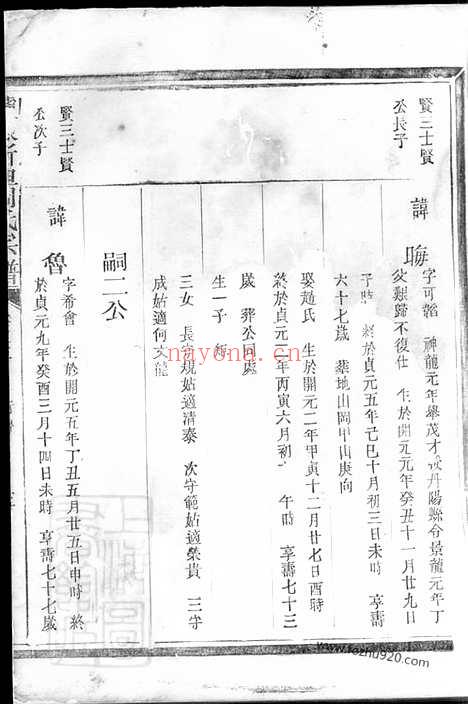 賢三士賢
公長子
諱 晦
字可韜 神龍元年舉茂才 丹陽縣令景龍元年丁
父艱歸不復仕 生於開元元年癸丑十一月廿九日
子時 終於貞元五年己巳十月初三日未時 享壽
六十七歲 葬地山岡甲山庚向
娶趙氏 生於開元二年甲寅十二月廿七日酉時
終於貞元二年丙寅六月初 午時 享壽七十三
歲 葬公同處
生一子
三女 長 規姑適清泰 次守範姑適榮貴 三守
成姑適何文龍
嗣二公
賢三士賢
公次子
諱 魯
字希會 生於開元五年丁丑五月廿五日申時 終
於貞元九年癸酉三月十四日未時 享壽七十七歲
周氏宗譜
nayona.cn
www.fozhu920.com